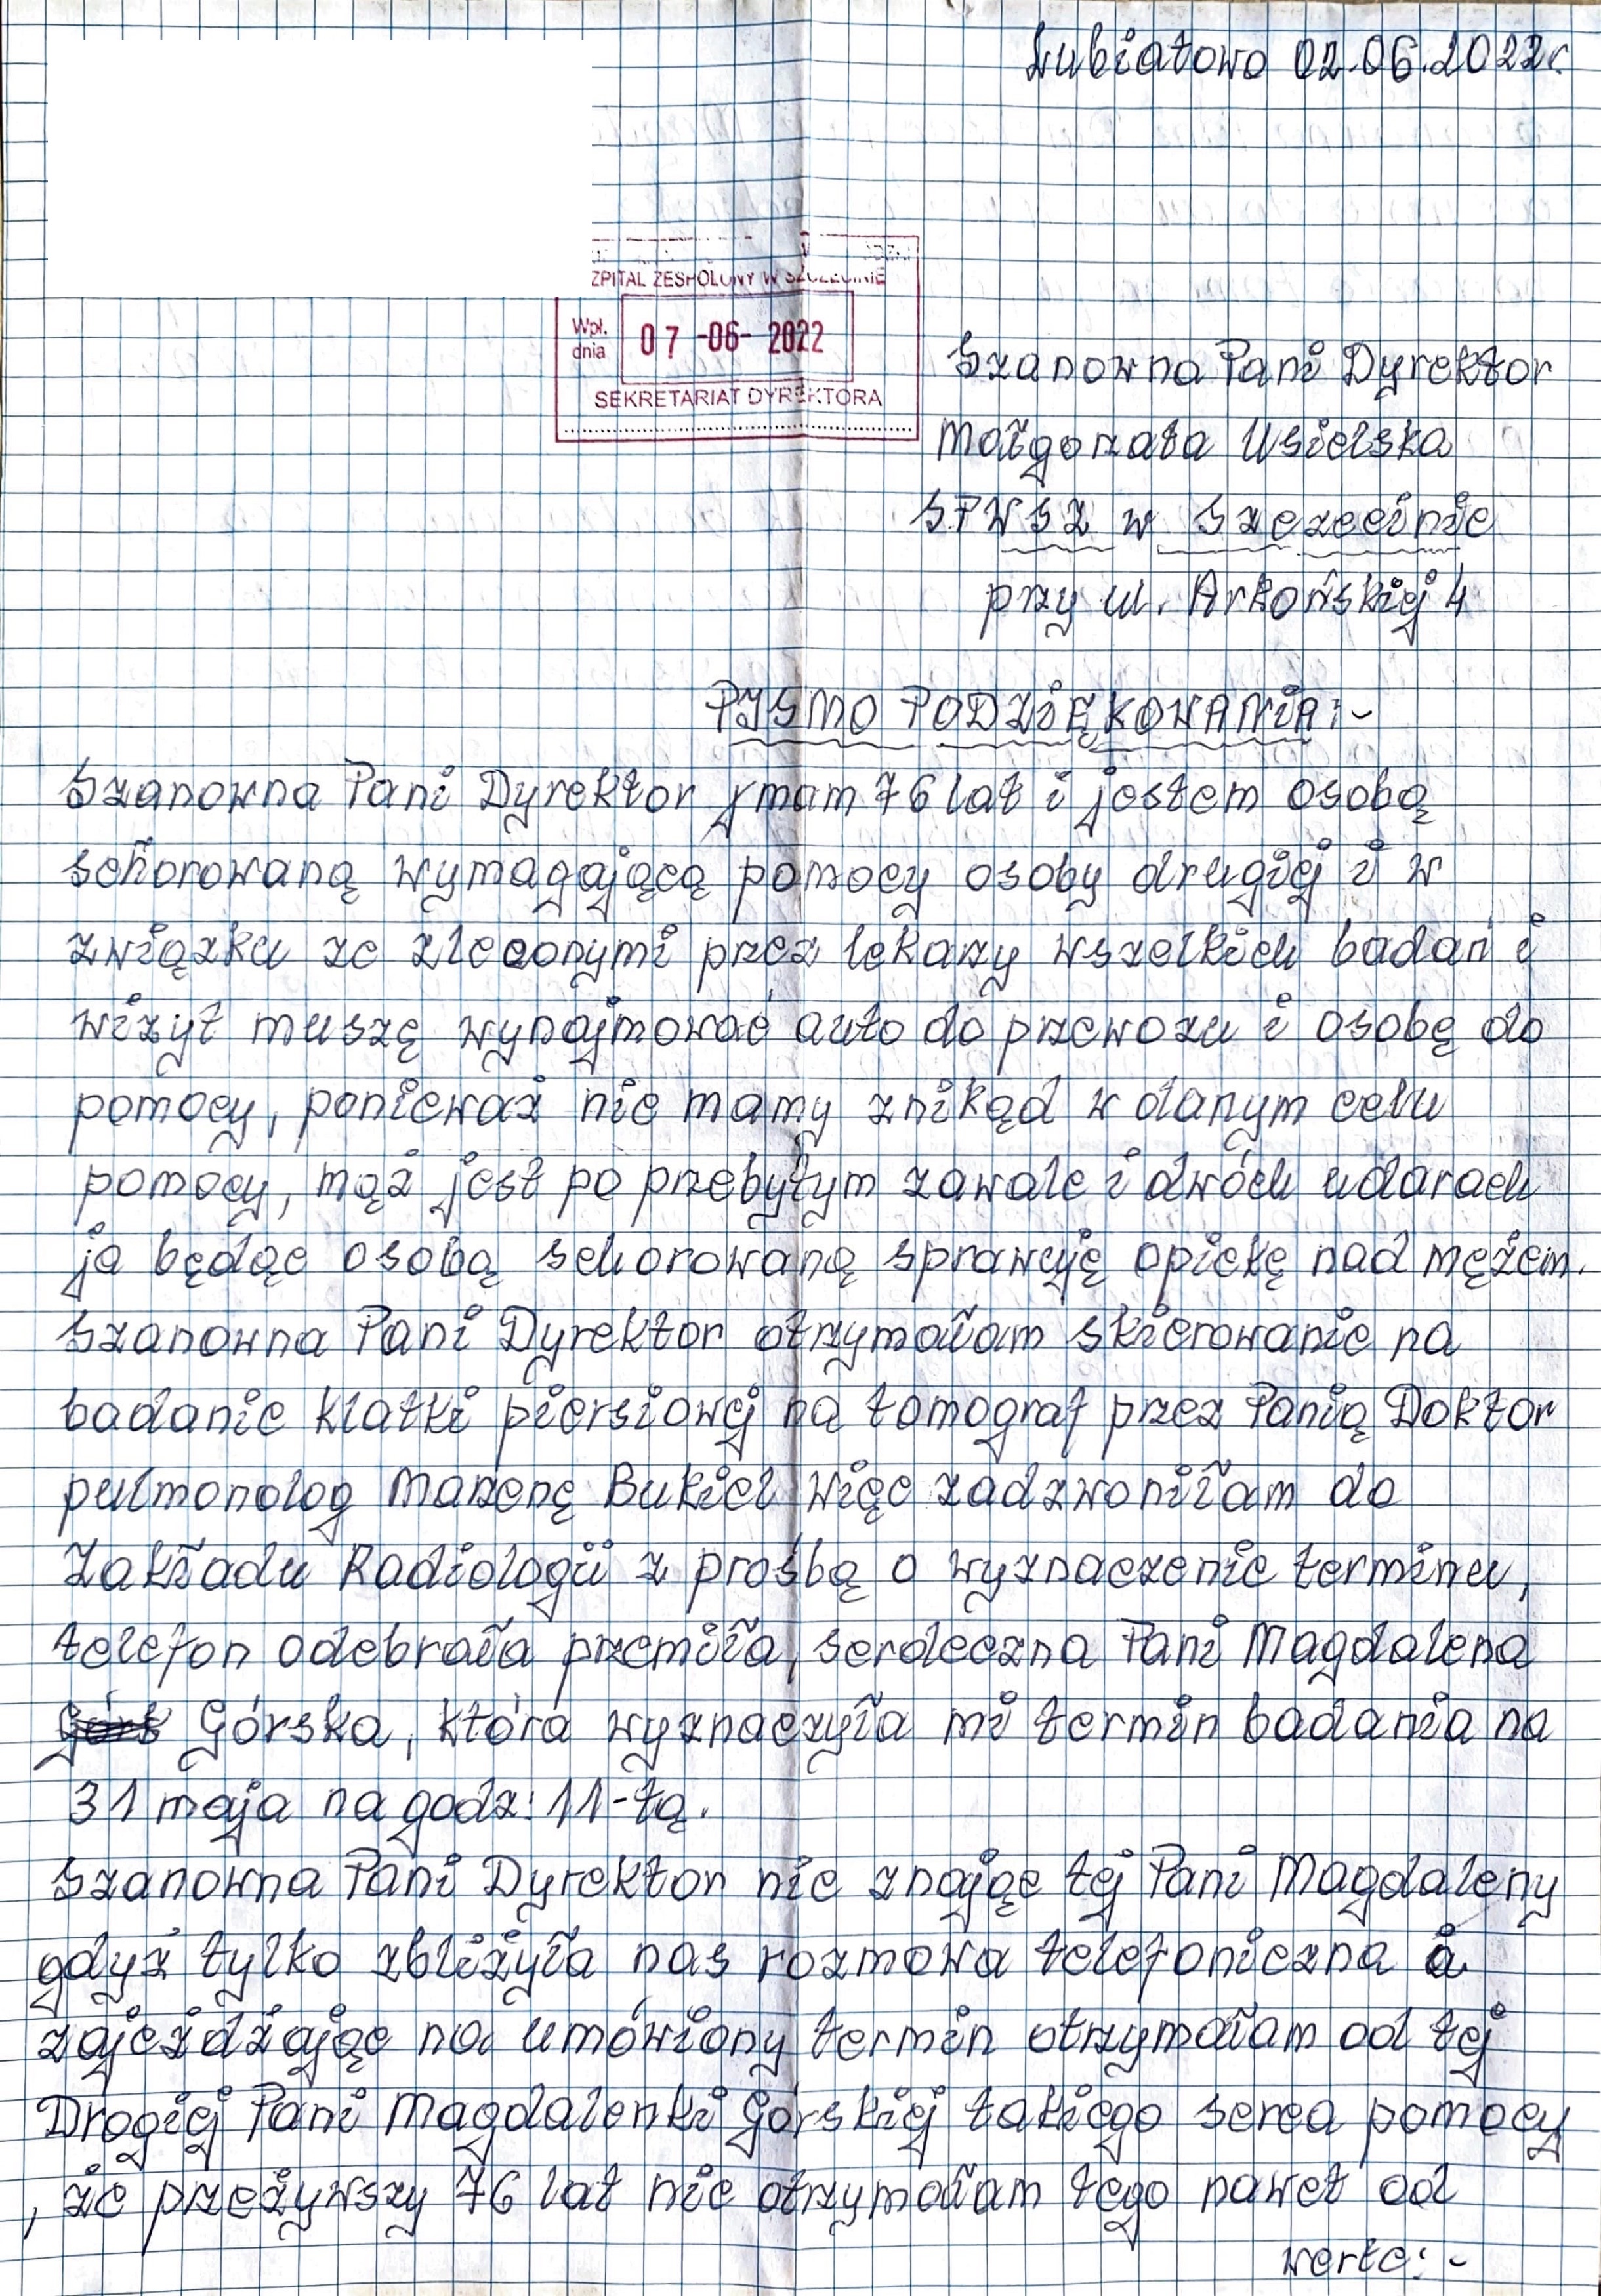 Lubiatowo 02.06.2022r.
SZPITAL ZESPOLONY W SZCZECINIE
Wpł. dnia 07-06-2022
SEKRETARIAT DYREKTORA
Szanowna Pani Dyrektor
Małgorzata Usielska
SPWSZ w Szczecinie
przy ul. Arkońskiej 4
PISMO PODZIĘKOWANIA:-
Szanowna Pani Dyrektor mam 76 lat i jestem osobą
schorowaną wymagającą pomocy osoby drugiej i w
związku ze zleconymi przez lekarzy wszelkich badań i
wizyt muszę wynajmować auto do przewozu i osobę do
pomocy, ponieważ nie mamy znikąd w danym celu
pomocy, mąż jest po przebytym zawale i dwóch udarach
ja będąc osobą schorowaną sprawuję opiekę nad mężem.
Szanowna Pani Dyrektor otrzymałam skierowanie na
badanie klatki piersiowej na tomograf przez Panią Doktor
pulmonolog Marzenę Bukiel więc zadzwoniłam do
Zakładu Radiologii z prośbą o wyznaczenie terminu,
telefon odebrała przemiła, serdeczna Pani Magdalena
Górska, która wyznaczyła mi termin badania na
31 maja na godz: 11-tą.
Szanowna Pani Dyrektor nie znając tej Pani Magdaleny
gdyż tylko zbliżyła nas rozmowa telefoniczna a
zajeżdżając na umówiony termin otrzymałam od tej
Drogiej Pani Magdalenki Górskiej takiego serca pomocy
, że przeżywszy 76 lat nie otrzymałam tego nawet od
verte:-